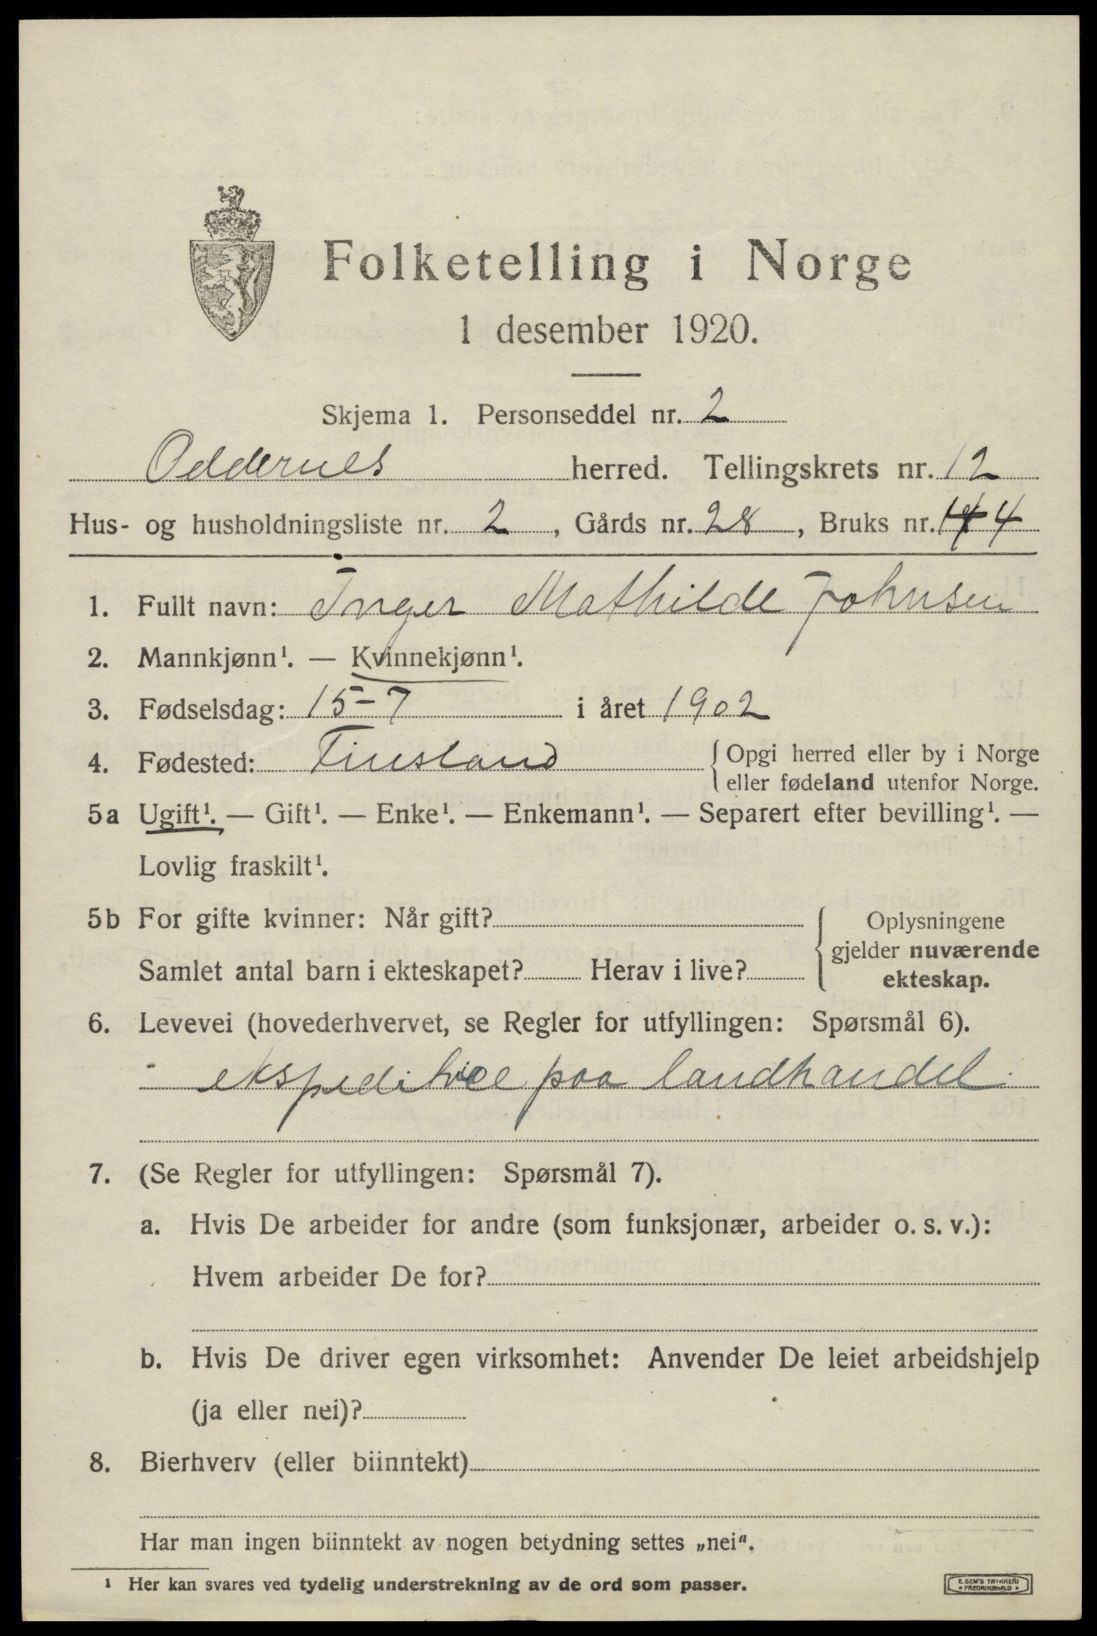 Folketelling i Norge
1 desember 1920.
Skjema 1. Personseddel nr. 2
Oddernes herred. Tellingskrets nr. 12
Hus- og husholdningsliste nr. 2, Gårds nr. 28, Bruks nr. 4
1. Fullt navn: Inger Mathilde Johnsen
2. Mannkjønn¹. — Kvinnekjønn¹.
3. Fødselsdag: 15-7 i året 1902
4. Fødested: Finsland {Opgi herred eller by i Norge
eller fødeland utenfor Norge.
5a Ugift¹. — Gift¹. — Enke¹. — Enkemann¹. — Separert efter bevilling¹. —
Lovlig fraskilt¹.
5b For gifte kvinner: Når gift?
Samlet antal barn i ekteskapet? Herav i live?
{Oplysningene
gjelder nuværende
ekteskap.
6. Levevei (hovederhvervet, se Regler for utfyllingen: Spørsmål 6).
ekspeditrice paa landhandel.
7. (Se Regler for utfyllingen: Spørsmål 7).
a. Hvis De arbeider for andre (som funksjonær, arbeider o. s. v.):
Hvem arbeider De for?
b. Hvis De driver egen virksomhet: Anvender De leiet arbeidshjelp
(ja eller nei)?
8. Bierhverv (eller biinntekt)
Har man ingen biinntekt av nogen betydning settes „nei".
¹ Her kan svares ved tydelig understrekning av de ord som passer.
E. SEM'S TRYKKERI
FREDRIKSHALD